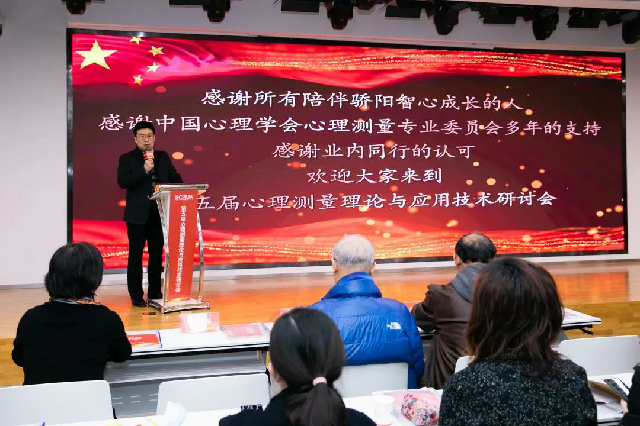 感谢所有陪伴骄阳智心成长的人
感谢中国心理学会心理测量专业委员会多年的支持
感谢业内同行的认可
欢迎大家来到
五届心理测量理论与应用技术研讨会